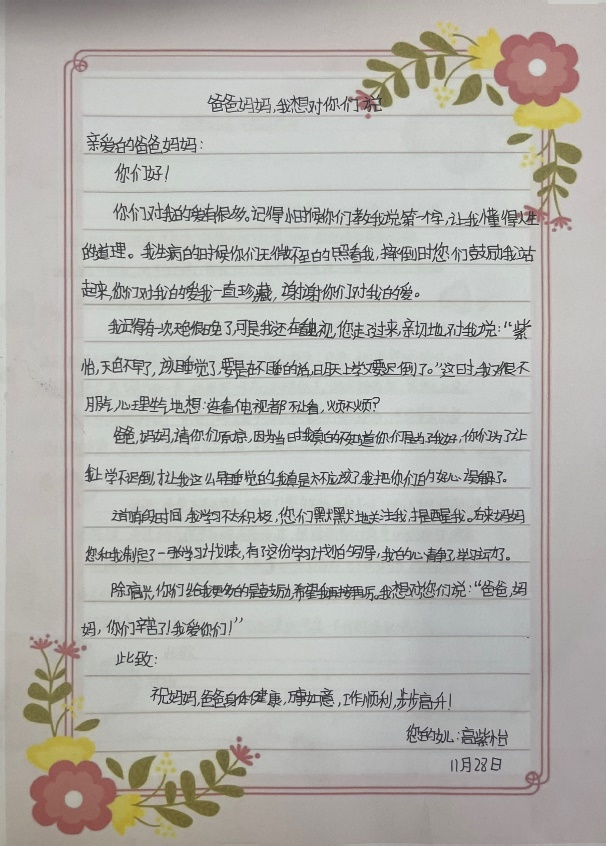 爸爸妈妈,我想对你们说
亲爱的爸爸妈妈:
你们好!
你们对我的爱有很多。记得小时候你们教我说第一个字,让我懂得人生
的道理。我生病的时候你们无微不至的照看我,摔倒时您们鼓励我站
起来,你们对我的爱我一直珍藏,谢谢你们对我的爱。
我记得有一次天色很晚了,可是我还在看电视,您走了过来,亲切地对我说:“紫
怡,天色不早了,该睡觉了,要是在不睡的话,明天上学要迟到了。”这时,我很不
服气,心理生气地想:连看电视都不让看,烦不烦?
爸爸,妈妈,请你们原谅,因为当时我真的不知道你们是为了我好,你们为了让
我上学不迟到,才让我这么早睡觉的,我真是太不应该了,我把你们的好心误解了。
之前有段时间,我学习不太积极,您们默默地关注我,提醒我。后来妈妈
您和我制定了一张学习计划表,有了这份学习计划的引导,我的心静了,学习有动力了。
除了 ,你们给我更多的是鼓励,希望我再接再厉,我想对您们说:“爸爸,妈
妈,你们辛苦了!我爱你们!”
此致:
祝妈妈,爸爸身体健康,万事如意,工作顺利,步步高升!
您的女儿:高紫怡
11月28日